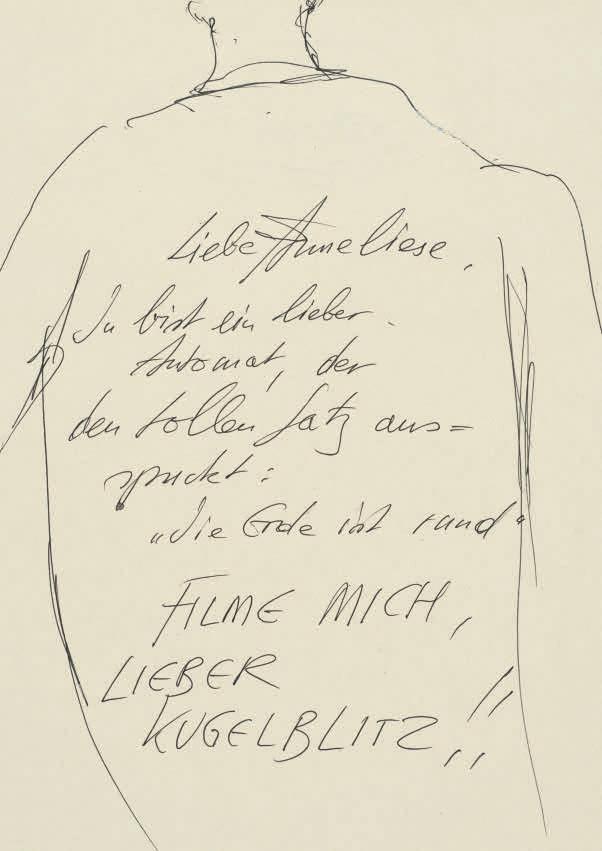 Liebe Anneliese,
Du bist ein lieber
Automat, der
den tollen Satz aus=
spuckt:
„Die Erde ist rund“
FILME MICH,
LIEBER
KUGELBLITZ!!